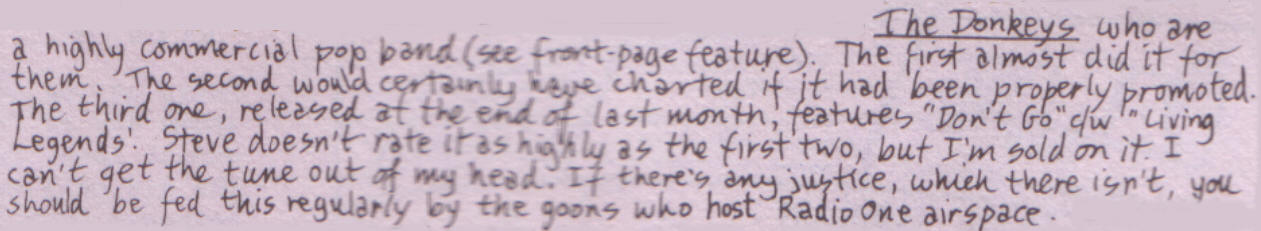 The Donkeys who are
a highly commercial pop band (see front-page feature). The first almost did it for
them. The second would certainly have charted if it had been properly promoted.
The third one, released at the end of last month, features "Don't Go" c/w "Living
Legends'. Steve doesn't rate it as highly as the first two, but I'm sold on it. I
can't get the tune out of my head. If there's any justice, which there isn't, you
should be fed this regularly by the goons who host Radio One airspace.